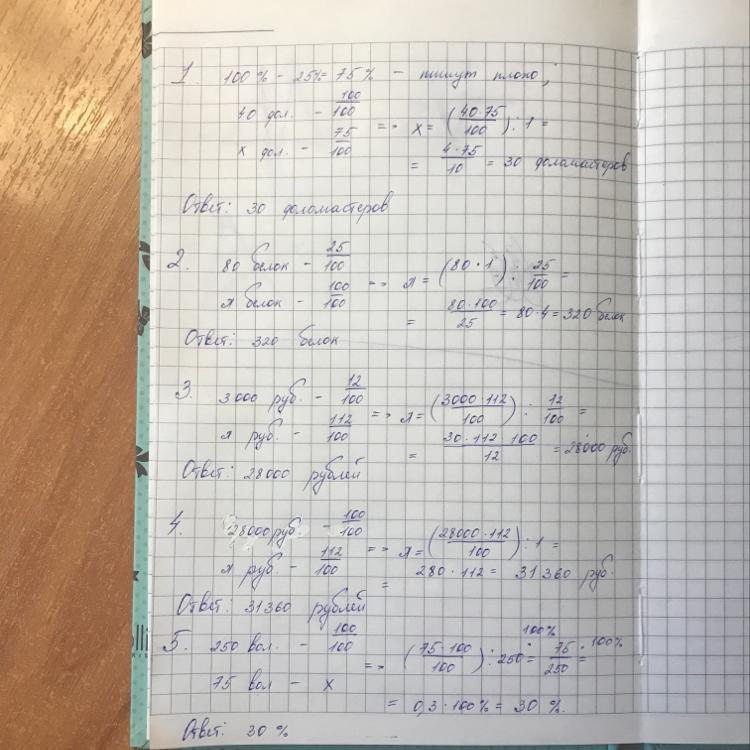 1. 100% - 25% = 75% - пишут плохо;
40 дол. - 100/100
x дол. - 75/100 => x = (40·75/100) : 1 =
= 4·75/10 = 30 доломастеров
Ответ: 30 доломастеров
2. 80 белок - 25/100
x белок - 100/100 => x = (80·1) : 25/100 =
= 80·100/25 = 80·4 = 320 белок
Ответ: 320 белок
3. 3000 руб. - 12/100
x руб. - 112/100 => x = (3000·112/100) : 12/100 =
= 30·112·100/12 = 28000 руб.
Ответ: 28000 рублей
4. 28000 руб. - 100/100
x руб. - 112/100 => x = (28000·112/100) : 1 =
= 280·112 = 31360 руб.
Ответ: 31360 рублей
5. 250 вол. - 100/100
75 вол - x => (75·100/100) : 250 · 100% = 75/250 · 100% =
= 0,3·100% = 30 %.
Ответ: 30 %